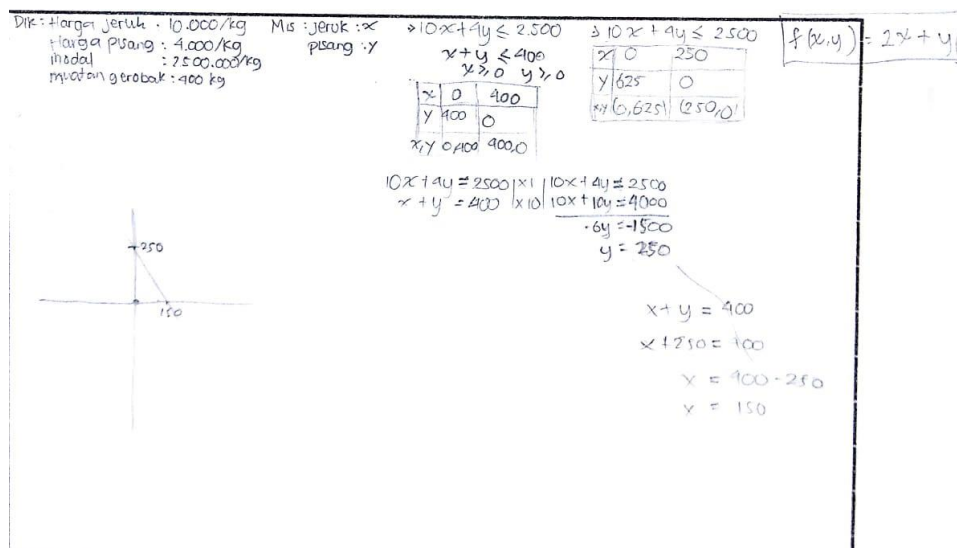 Dik : Harga jeruk : 10.000/kg
Harga pisang : 4.000/kg
modal : 2.500.000/kg
muatan gerobak : 400 kg
Mis : jeruk : x
pisang : y
→ 10x + 4y ≤ 2.500
x + y ≤ 400
x ≥ 0 y ≥ 0
x 0 400
y 400 0
x,y 0,400 400,0
→ 10x + 4y ≤ 2500
x 0 250
y 625 0
x,y (0,625) (250,0)
f(x,y) = 2x + y
10x + 4y = 2500 | x1 | 10x + 4y = 2500
x + y = 400 | x10 | 10x + 10y = 4000
-6y = -1500
y = 250
x + y = 400
x + 250 = 400
x = 400 - 250
x = 150
250
150